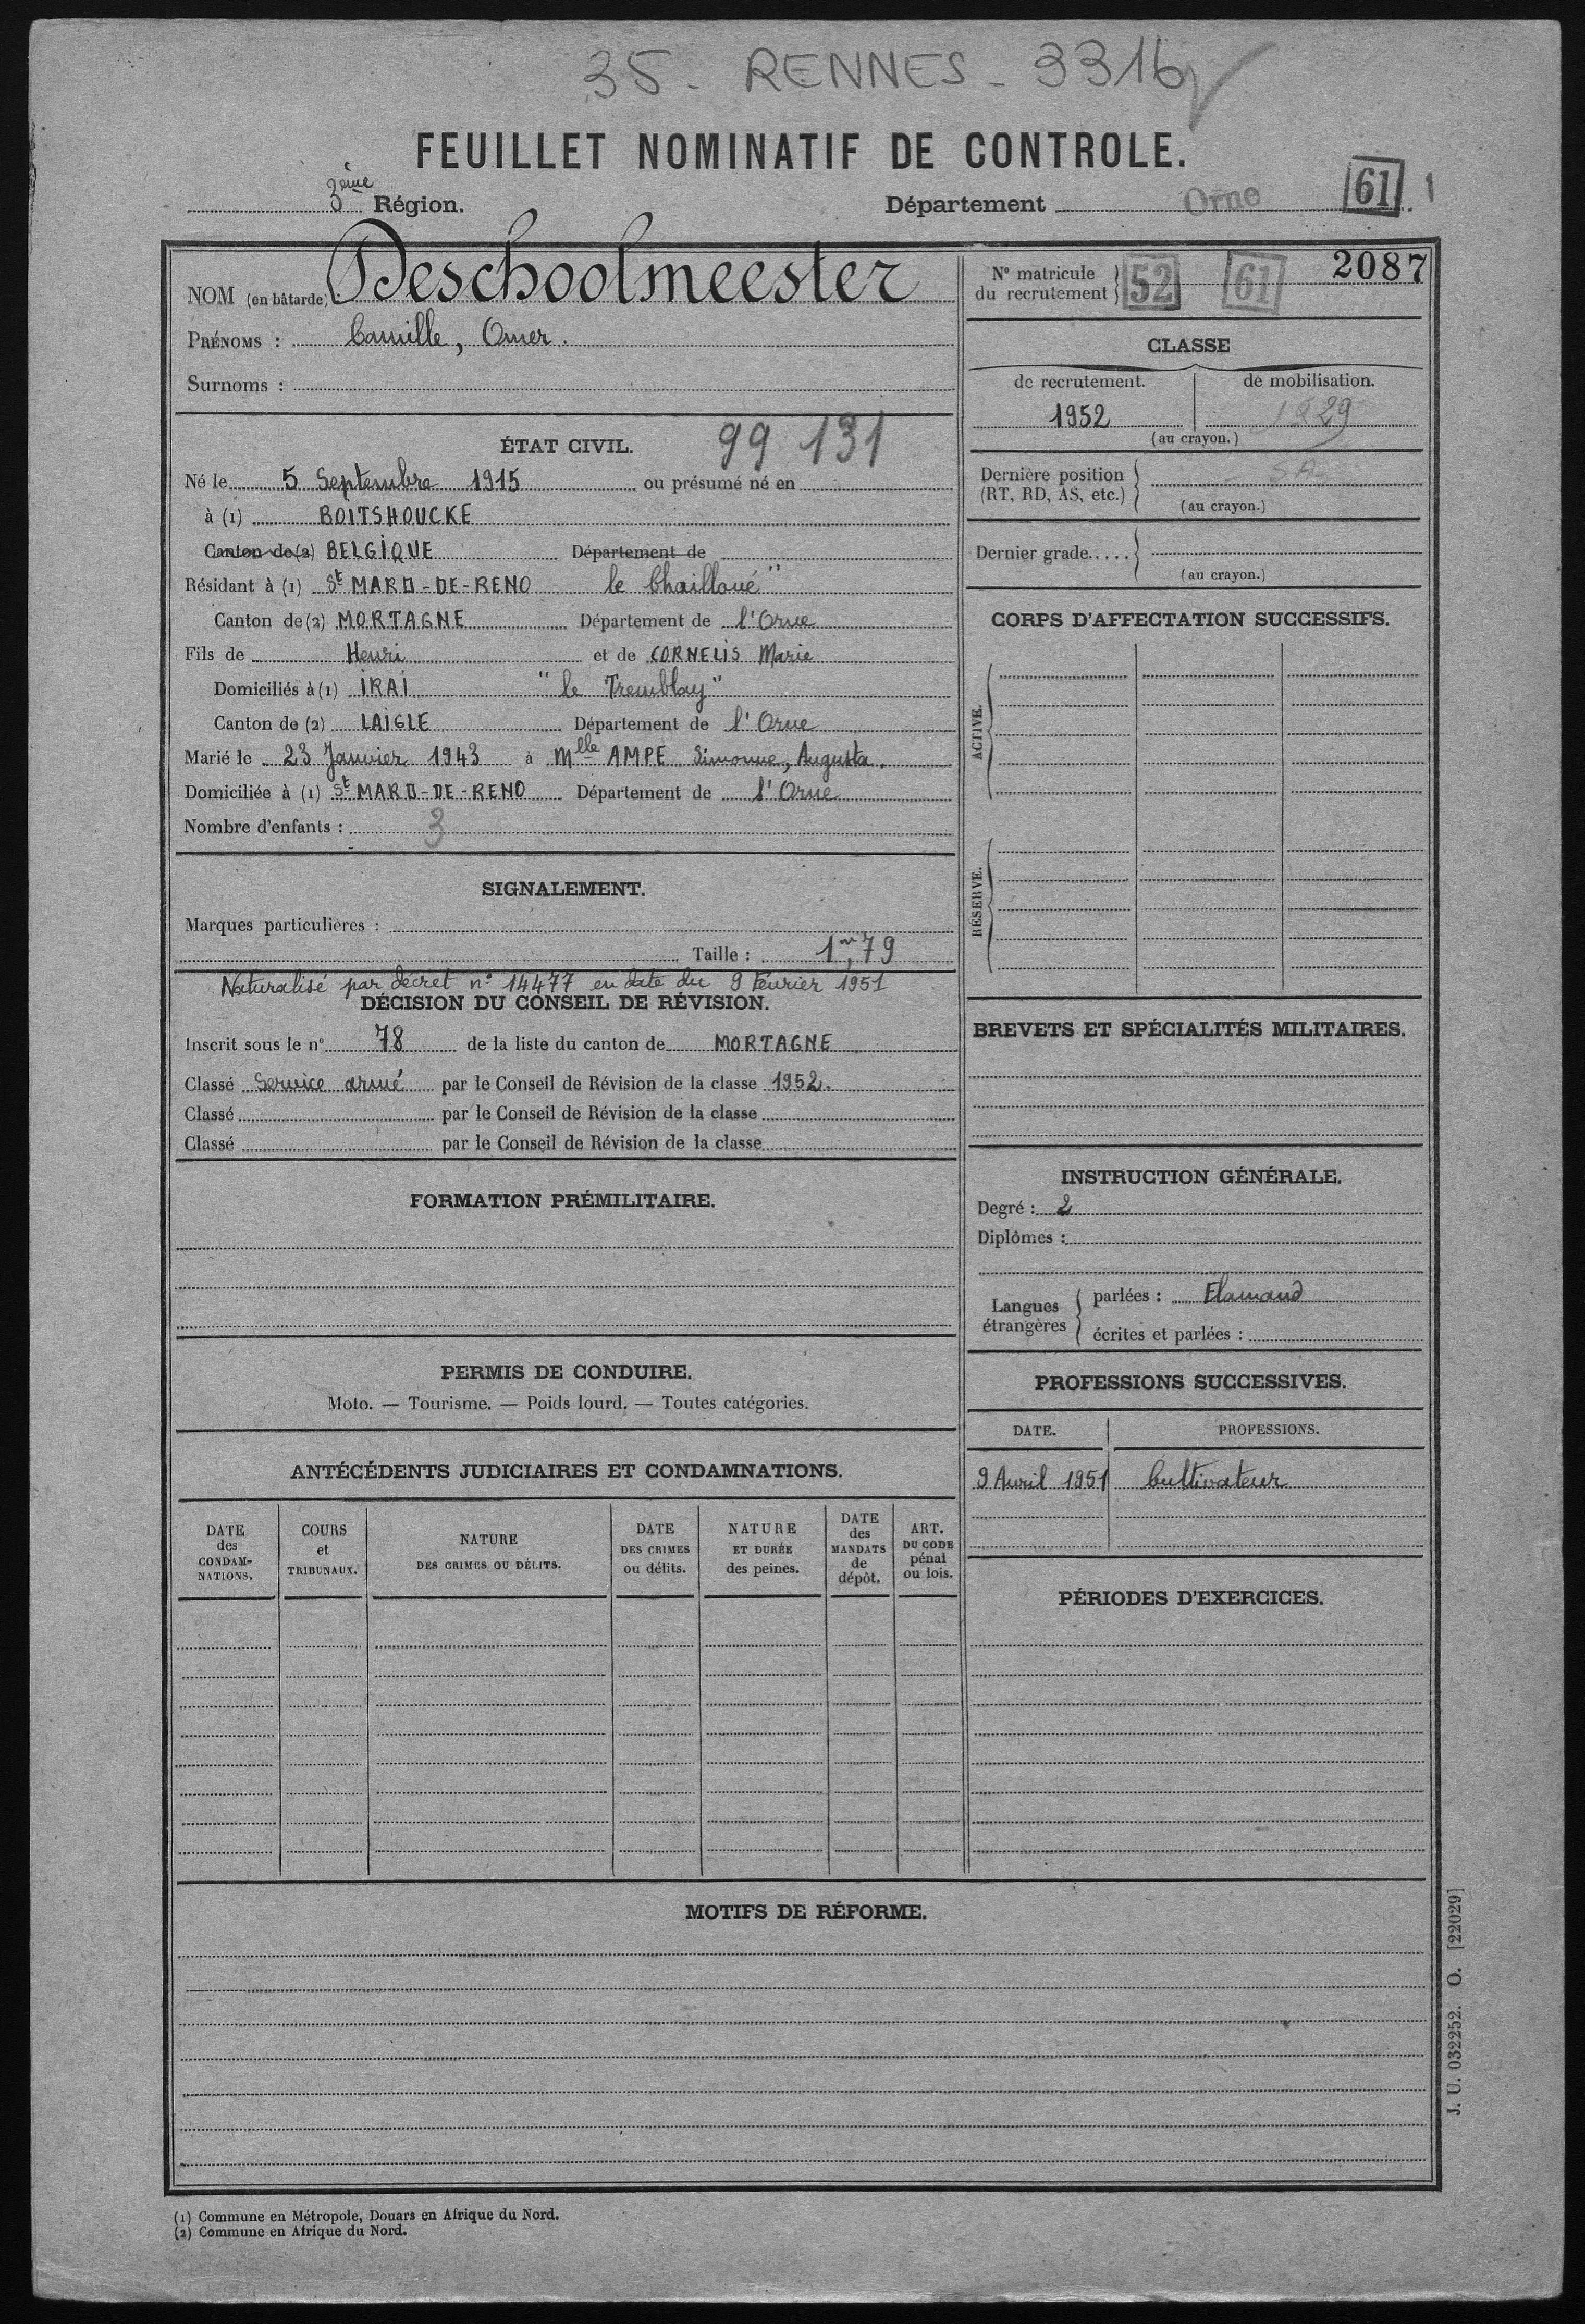 35 - RENNES - 3316
FEUILLET NOMINATIF DE CONTROLE.
3ème Région.
Département Orne 61 1
NOM (en bâtarde) : Deschoolmeester
PRÉNOMS : Camille, Omer.
Surnoms :
N° matricule du recrutement 52 61 2087
CLASSE
de recrutement. de mobilisation.
1952 1929
(au crayon.)
Dernière position (RT, RD, AS, etc.) - SA-
(au crayon.)
Dernier grade.....
(au crayon.)
ÉTAT CIVIL. 99 131
Né le 5 Septembre 1915 ou présumé né en
à (1) BOITSHOUCKE
Canton de (2) BELGIQUE Département de
Résidant à (1) St MARD-DE-RENO le Chailloué"
Canton de (2) MORTAGNE Département de l'Orne
Fils de Henri et de CORNELIS Marie
Domiciliés à (1) IRAI "le Tremblay"
Canton de (2) LAIGLE Département de l'Orne
Marié le 23 Janvier 1943 à Mlle AMPE Simonne, Augusta.
Domiciliée à (1) St MARD-DE-RENO Département de l'Orne
Nombre d'enfants : 3
CORPS D'AFFECTATION SUCCESSIFS.
ACTIVE.
RÉSERVE.
SIGNALEMENT.
Marques particulières :
Taille : 1m,79
Naturalisé par décret n° 14477 en date du 9 Février 1951
DÉCISION DU CONSEIL DE RÉVISION.
Inscrit sous le n° 78 de la liste du canton de MORTAGNE
Classé Service armé par le Conseil de Révision de la classe 1952.
Classé par le Conseil de Révision de la classe
Classé par le Conseil de Révision de la classe
BREVETS ET SPÉCIALITÉS MILITAIRES.
FORMATION PRÉMILITAIRE.
INSTRUCTION GÉNÉRALE.
Degré : 2
Diplômes :
Langues étrangères parlées : Flamand
écrites et parlées :
PERMIS DE CONDUIRE.
Moto. — Tourisme. — Poids lourd. — Toutes catégories.
PROFESSIONS SUCCESSIVES.
DATE. PROFESSIONS.
9 Avril 1951 Cultivateur
ANTÉCÉDENTS JUDICIAIRES ET CONDAMNATIONS.
DATE des CONDAM-NATIONS.
COURS et TRIBUNAUX.
NATURE DES CRIMES OU DÉLITS.
DATE DES CRIMES ou délits.
NATURE ET DURÉE des peines.
DATE des MANDATS de dépôt.
ART. DU CODE pénal ou lois.
PÉRIODES D'EXERCICES.
MOTIFS DE RÉFORME.
J. U. 032252. O. [22029]
(1) Commune en Métropole, Douars en Afrique du Nord.
(2) Commune en Afrique du Nord.